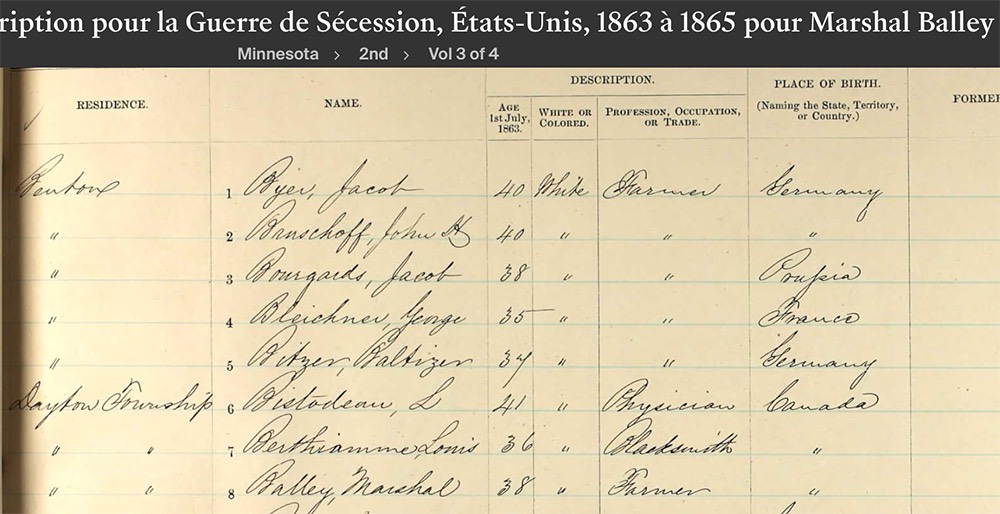 ription pour la Guerre de Sécession, États-Unis, 1863 à 1865 pour Marshal Balley
Minnesota > 2nd > Vol 3 of 4
DESCRIPTION. PLACE OF BIRTH.
RESIDENCE. NAME. AGE 1st July, 1863. WHITE OR COLORED. PROFESSION, OCCUPATION, OR TRADE. (Naming the State, Territory, or Country.) FORMER
Benton 1 Byer, Jacob 40 White Farmer Germany
" 2 Bruschoff, John H 40 " " "
" 3 Bourgards, Jacob 38 " " Prussia
" 4 Bleichner, George 35 " " France
" 5 Bitzer, Baltizer 37 " " Germany
Dayton Township 6 Bistodeau, L 41 " Physician Canada
" " 7 Berthiamme, Louis 36 " Blacksmith "
" " 8 Balley, Marshal 38 " Farmer "